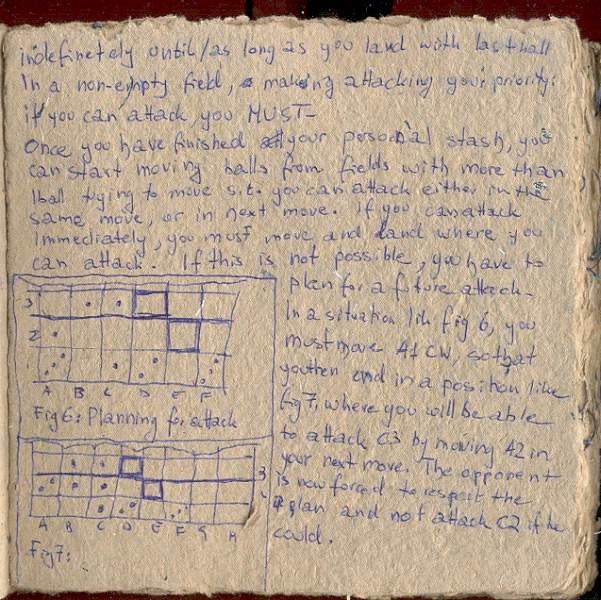 indefinetely until/as long as you land with last ball
In a non-empty field, making attacking your priority:
if you can attack you MUST-
Once you have finished your personal stash, you
can start moving balls from fields with more than
1 ball trying to move s.t. you can attack either in the
same move, or in next move. If you can attack
immediately, you must move and land where you
can attack. If this is not possible, you have to
plan for a future attack.
In a situation like fig 6, you
must move A1 CW, so that
you then end in a position like
fig 7, where you will be able
to attack C3 by moving A2 in
your next move. The opponent
is now forced to respect the
plan and not attack C2 if he
could.
3
2
1
A B C D E F
Fig 6: Planning for attack
3
A B C D E F G H
Fig 7: